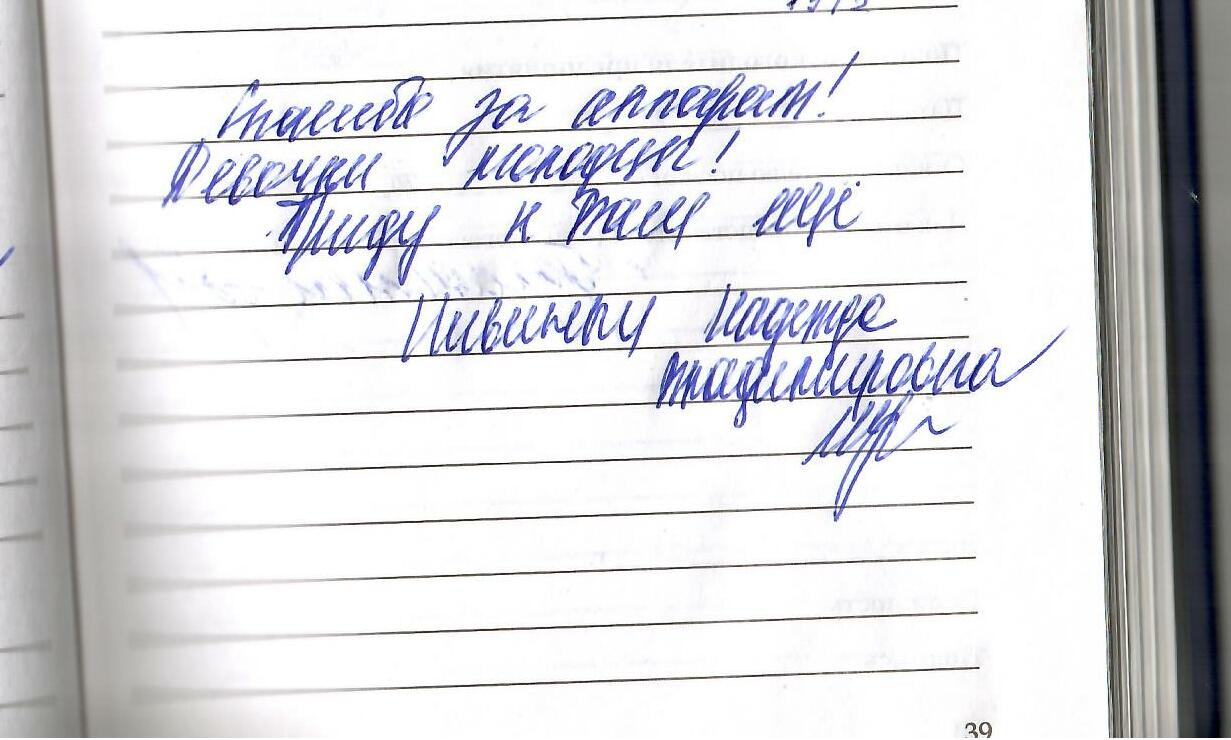 Спасибо за аппарат!
Девочки молодцы!
Приду к Вам ещё
Надежда
Владимировна
39